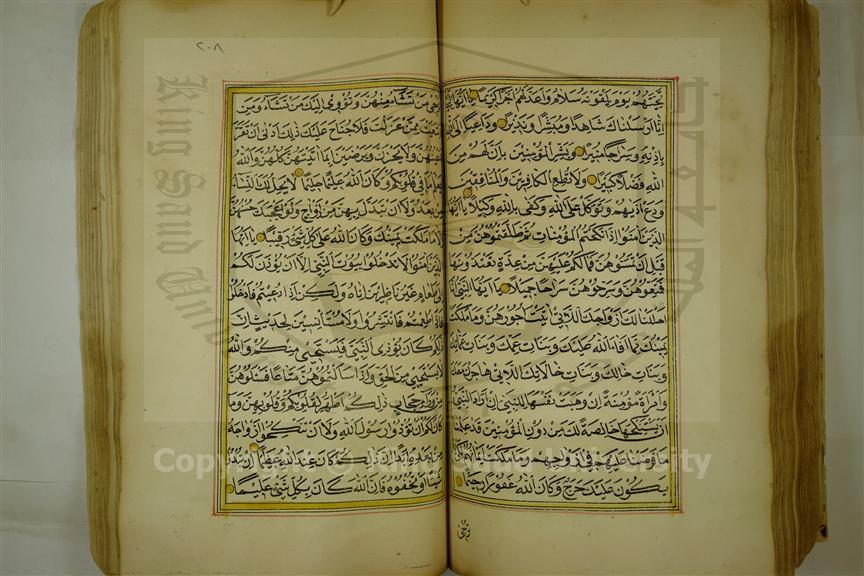 تحيتهم يوم يلقونه سلام واعد لهم اجرا كريما يا ايها النبي
انا ارسلناك شاهدا ومبشرا ونذيرا وداعيا الى الله
باذنه وسراجا منيرا وبشر المؤمنين بان لهم من
الله فضلا كبيرا ولا تطع الكافرين والمنافقين
ودع اذيهم وتوكل على الله وكفى بالله وكيلا يا ايها
الذين امنوا اذا نكحتم المؤمنات ثم طلقتموهن من
قبل ان تمسوهن فما لكم عليهن من عدة تعتدونها
فمتعوهن وسرحوهن سراحا جميلا يا ايها النبي انا
احللنا لك ازواجك اللاتي اتيت اجورهن وما ملكت
يمينك مما افاء الله عليك وبنات عمك وبنات عماتك
وبنات خالك وبنات خالاتك اللاتي هاجرن معك
وامراة مؤمنة ان وهبت نفسها للنبي ان اراد النبي
ان يستنكحها خالصة لك من دون المؤمنين قد علمنا
ما فرضنا عليهم في ازواجهم وما ملكت ايمانهم لكيلا
يكون عليك حرج وكان الله غفورا رحيما
ترجي
٢٠٨
ترجي من تشاء منهن وتؤوي اليك من تشاء ومن
ابتغيت ممن عزلت فلا جناح عليك ذلك ادنى ان تقر
اعينهن ولا يحزن ويرضين بما اتيتهن كلهن والله
يعلم ما في قلوبكم وكان الله عليما حليما لا يحل لك النساء
من بعد ولا ان تبدل بهن من ازواج ولو اعجبك حسنهن
الا ما ملكت يمينك وكان الله على كل شئ رقيبا يا ايها
الذين امنوا لا تدخلوا بيوت النبي الا ان يؤذن لكم
الى طعام غير ناظرين اناه ولكن اذا دعيتم فادخلوا
فاذا طعمتم فانتشروا ولا مستانسين لحديث ان
ذلكم كان يؤذي النبي فيستحيي منكم والله
لا يستحيي من الحق واذا سالتموهن متاعا فسئلوهن
من وراء حجاب ذلكم اطهر لقلوبكم وقلوبهن وما
كان لكم ان تؤذوا رسول الله ولا ان تنكحوا ازواجه
من بعده ابدا ان ذلكم كان عند الله عظيما ان تبدوا
شيئا او تخفوه فان الله كان بكل شئ عليما
King Saud University
Copyright © King Saud University